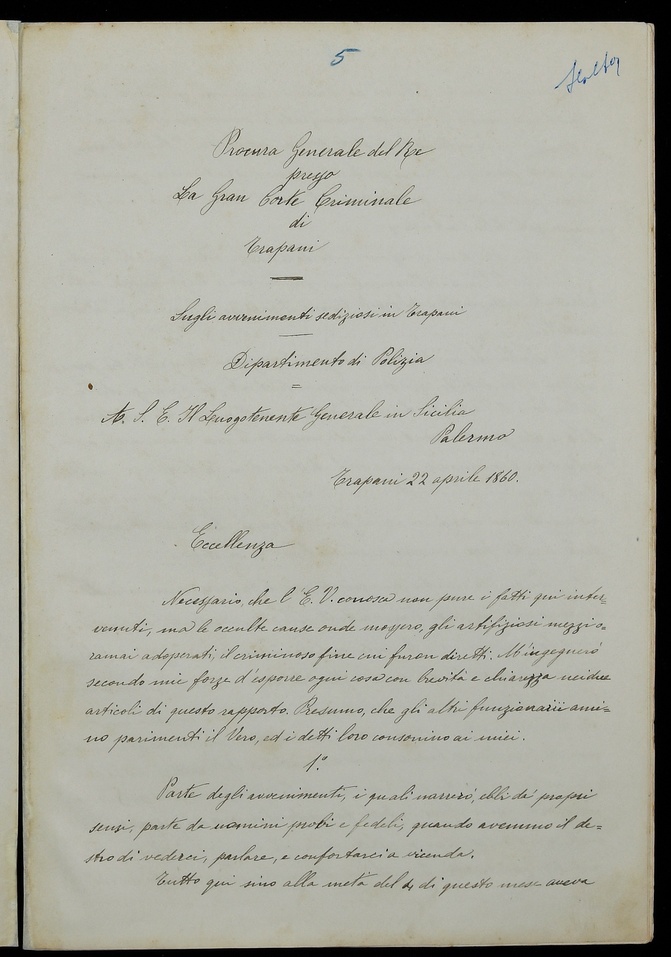 5
Procura Generale del Re
presso
La Gran Corte Criminale
di
Trapani
Sugli avvenimenti sediziosi in Trapani
Dipartimento di Polizia
A. S. E. Il Luogotenente Generale in Sicilia
Palermo
Trapani 22 aprile 1860.
Eccellenza
Necessario, che l'E. V. conosca non pure i fatti qui inter=
venuti, ma le occulte cause onde mossero, gli artifiziosi mezzi o=
ramai adoperati, il criminoso fine cui furon diretti. M'ingegnerò
secondo mie forze d'esporre ogni cosa con brevità e chiarezza nei due
articoli di questo rapporto. Presumo, che gli altri funzionarii ami=
no parimenti il Vero, ed i detti loro consonino ai miei.
1.º
Parte degli avvenimenti, i quali narrerò, ebbi da' propri
sensi, parte da uomini probi e fedeli, quando avemmo il de=
stro di vederci, parlare, e confortarci a vicenda.
Tutto qui sino alla metà del 4 di questo mese aveva